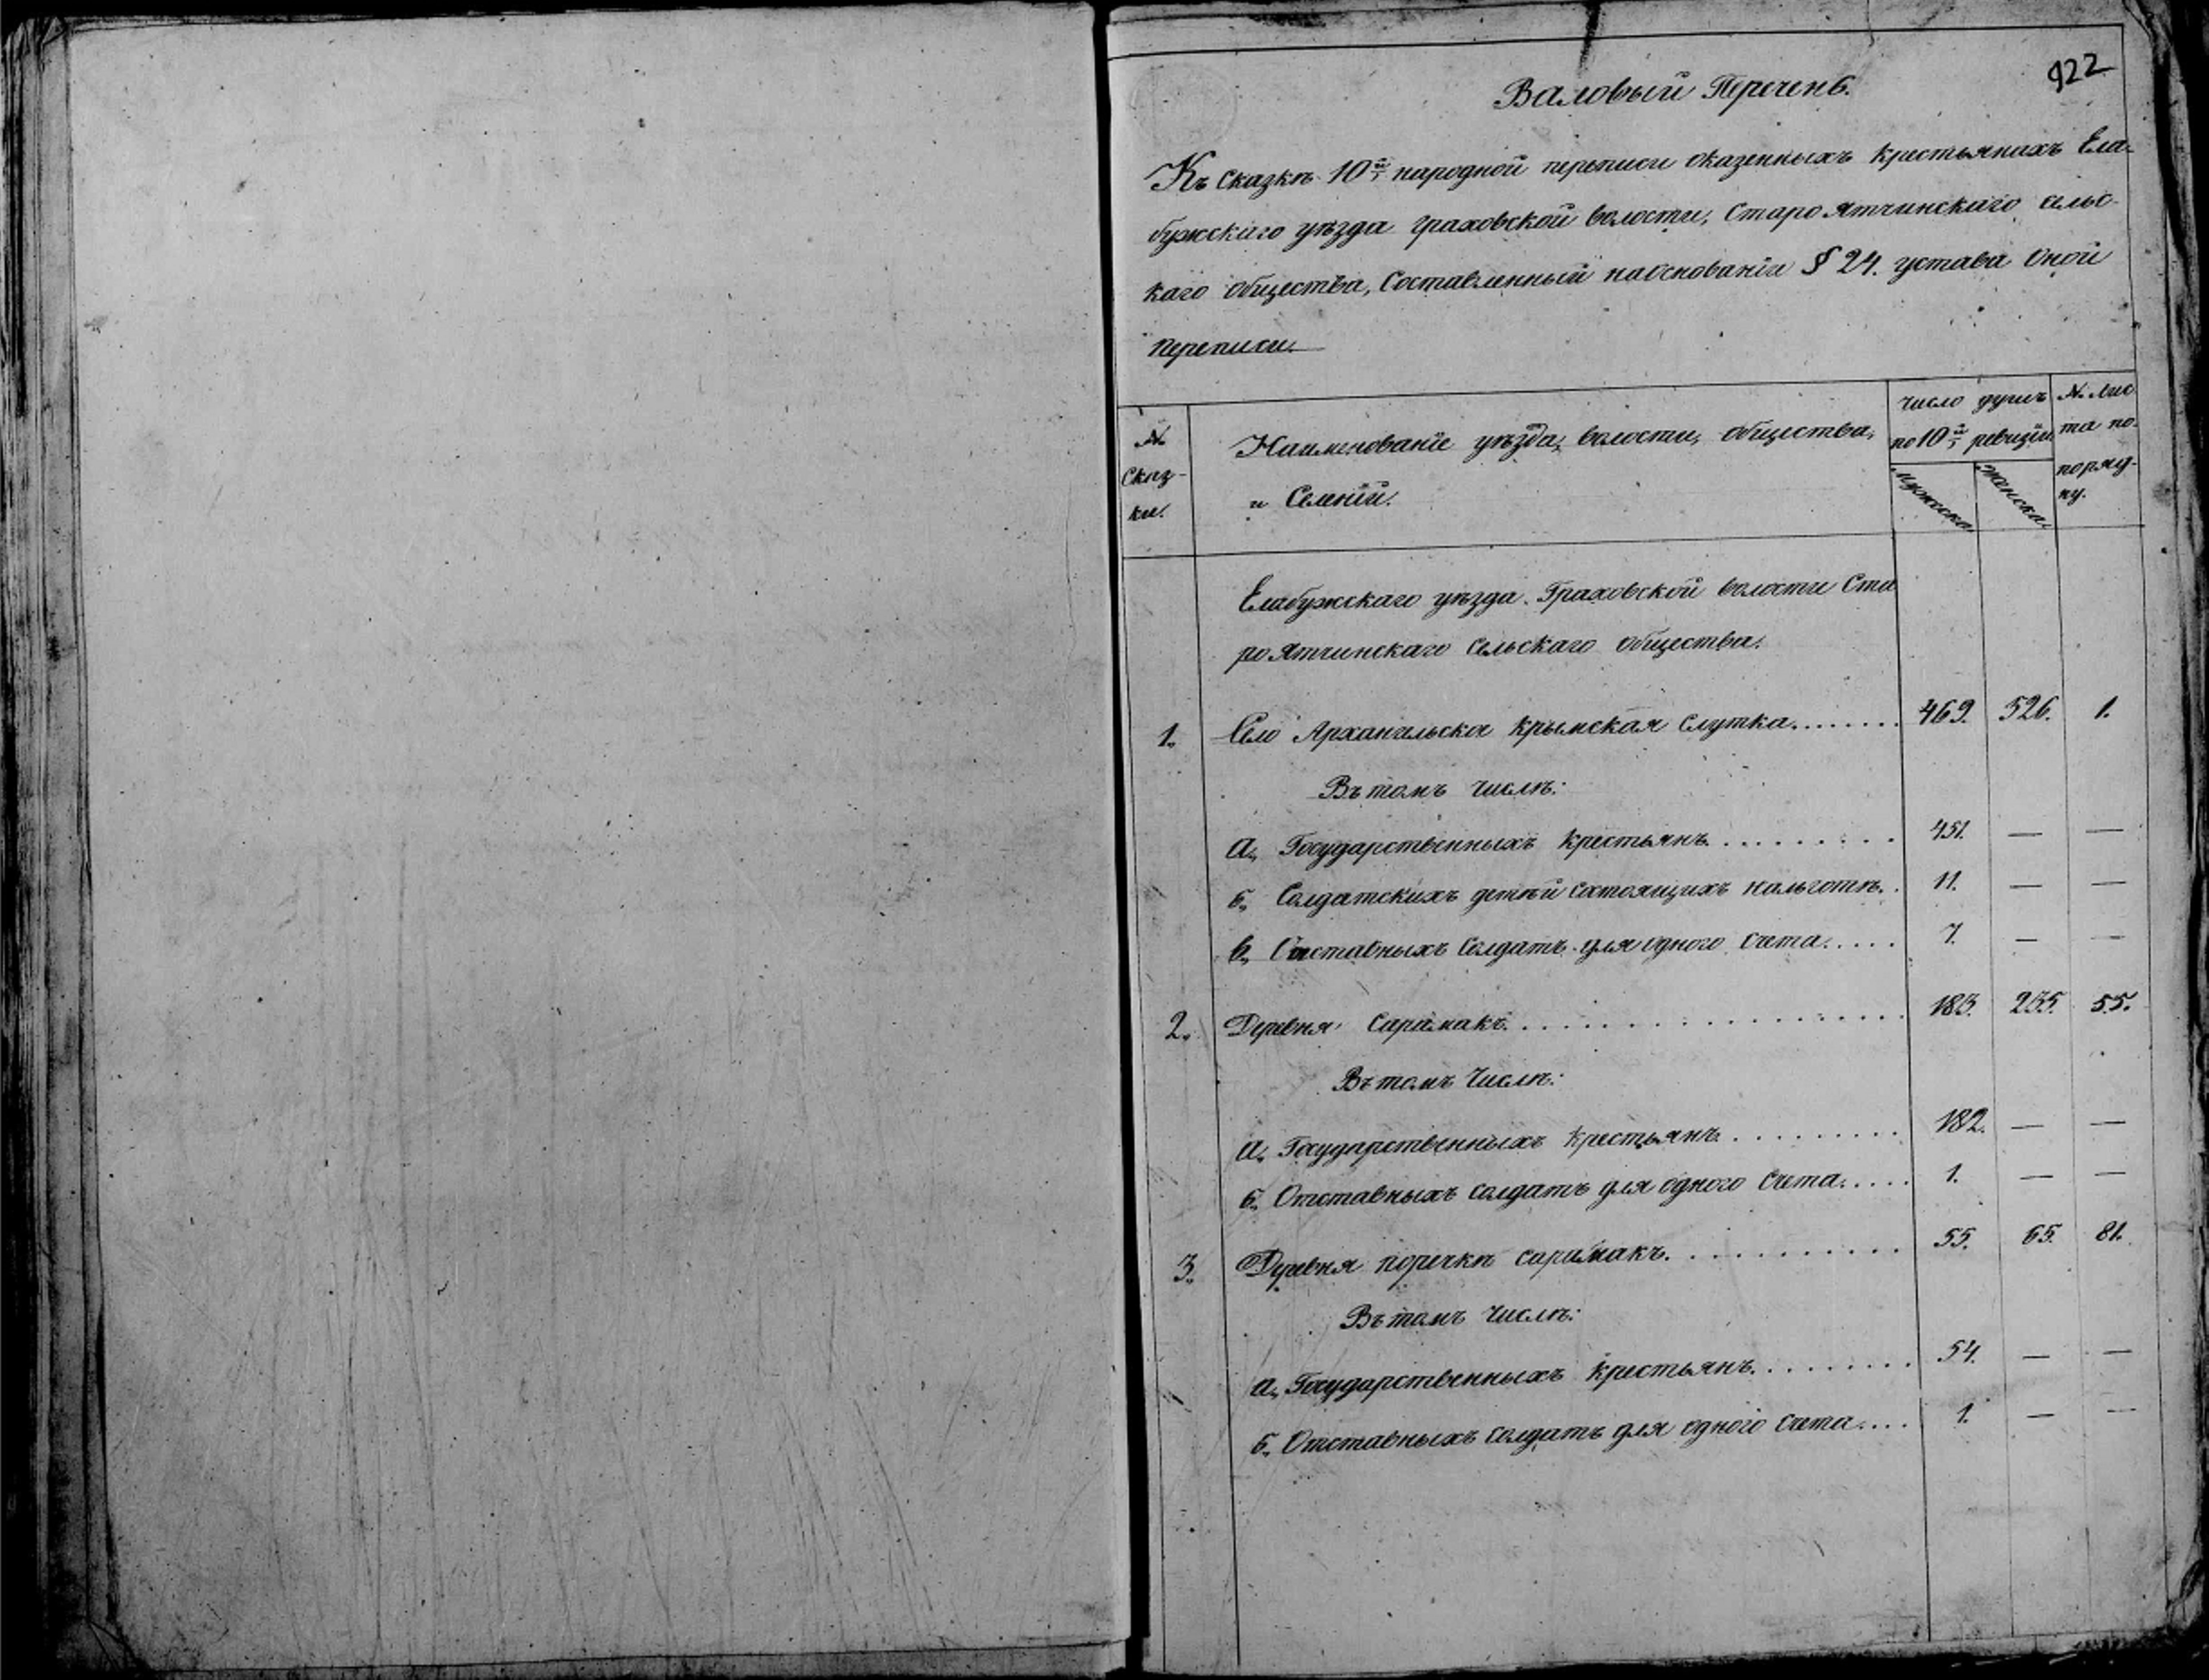 922
Валовый Перечень.
Къ Сказкѣ 10й народной переписи оказенныхъ крестьянахъ Ела-
бужскаго уѣзда граховской волости, Старо ятчинскаго сельс-
каго общества, Составленный наоснованіи § 24. устава оной
переписи.
№ Наименованіе уѣзда, волости, общества, число душъ № лис
Сказ- и Селеній. по 10й ревизіи та по-
ки. мужска женска поряд-
ку.
Елабужскаго уѣзда. Граховской волости Ста
ро Ятчинскаго сельскаго общества.
1. Село Архангельска Крымская Слутка........ 469. 526. 1.
Въ томъ числѣ:
а., Государственныхъ крестьянъ......... 451. — —
б., Солдатскихъ дѣтей состоящихъ нальготѣ.. 11. — —
в., Отставныхъ солдатъ для одного счета..... 7. — —
2. Деревня Сарамакъ................... 183. 235. 55.
Въ томъ Числѣ:
а., Государственныхъ крестьянъ......... 182. — —
б., Отставныхъ солдатъ для одного счета..... 1. — —
3. Деревня поречкѣ сарамакъ........... 55. 65. 81.
Въ томъ Числѣ:
а., Государственныхъ крестьянъ........ 54. — —
б., Отставныхъ солдатъ для одного счета.... 1. — —